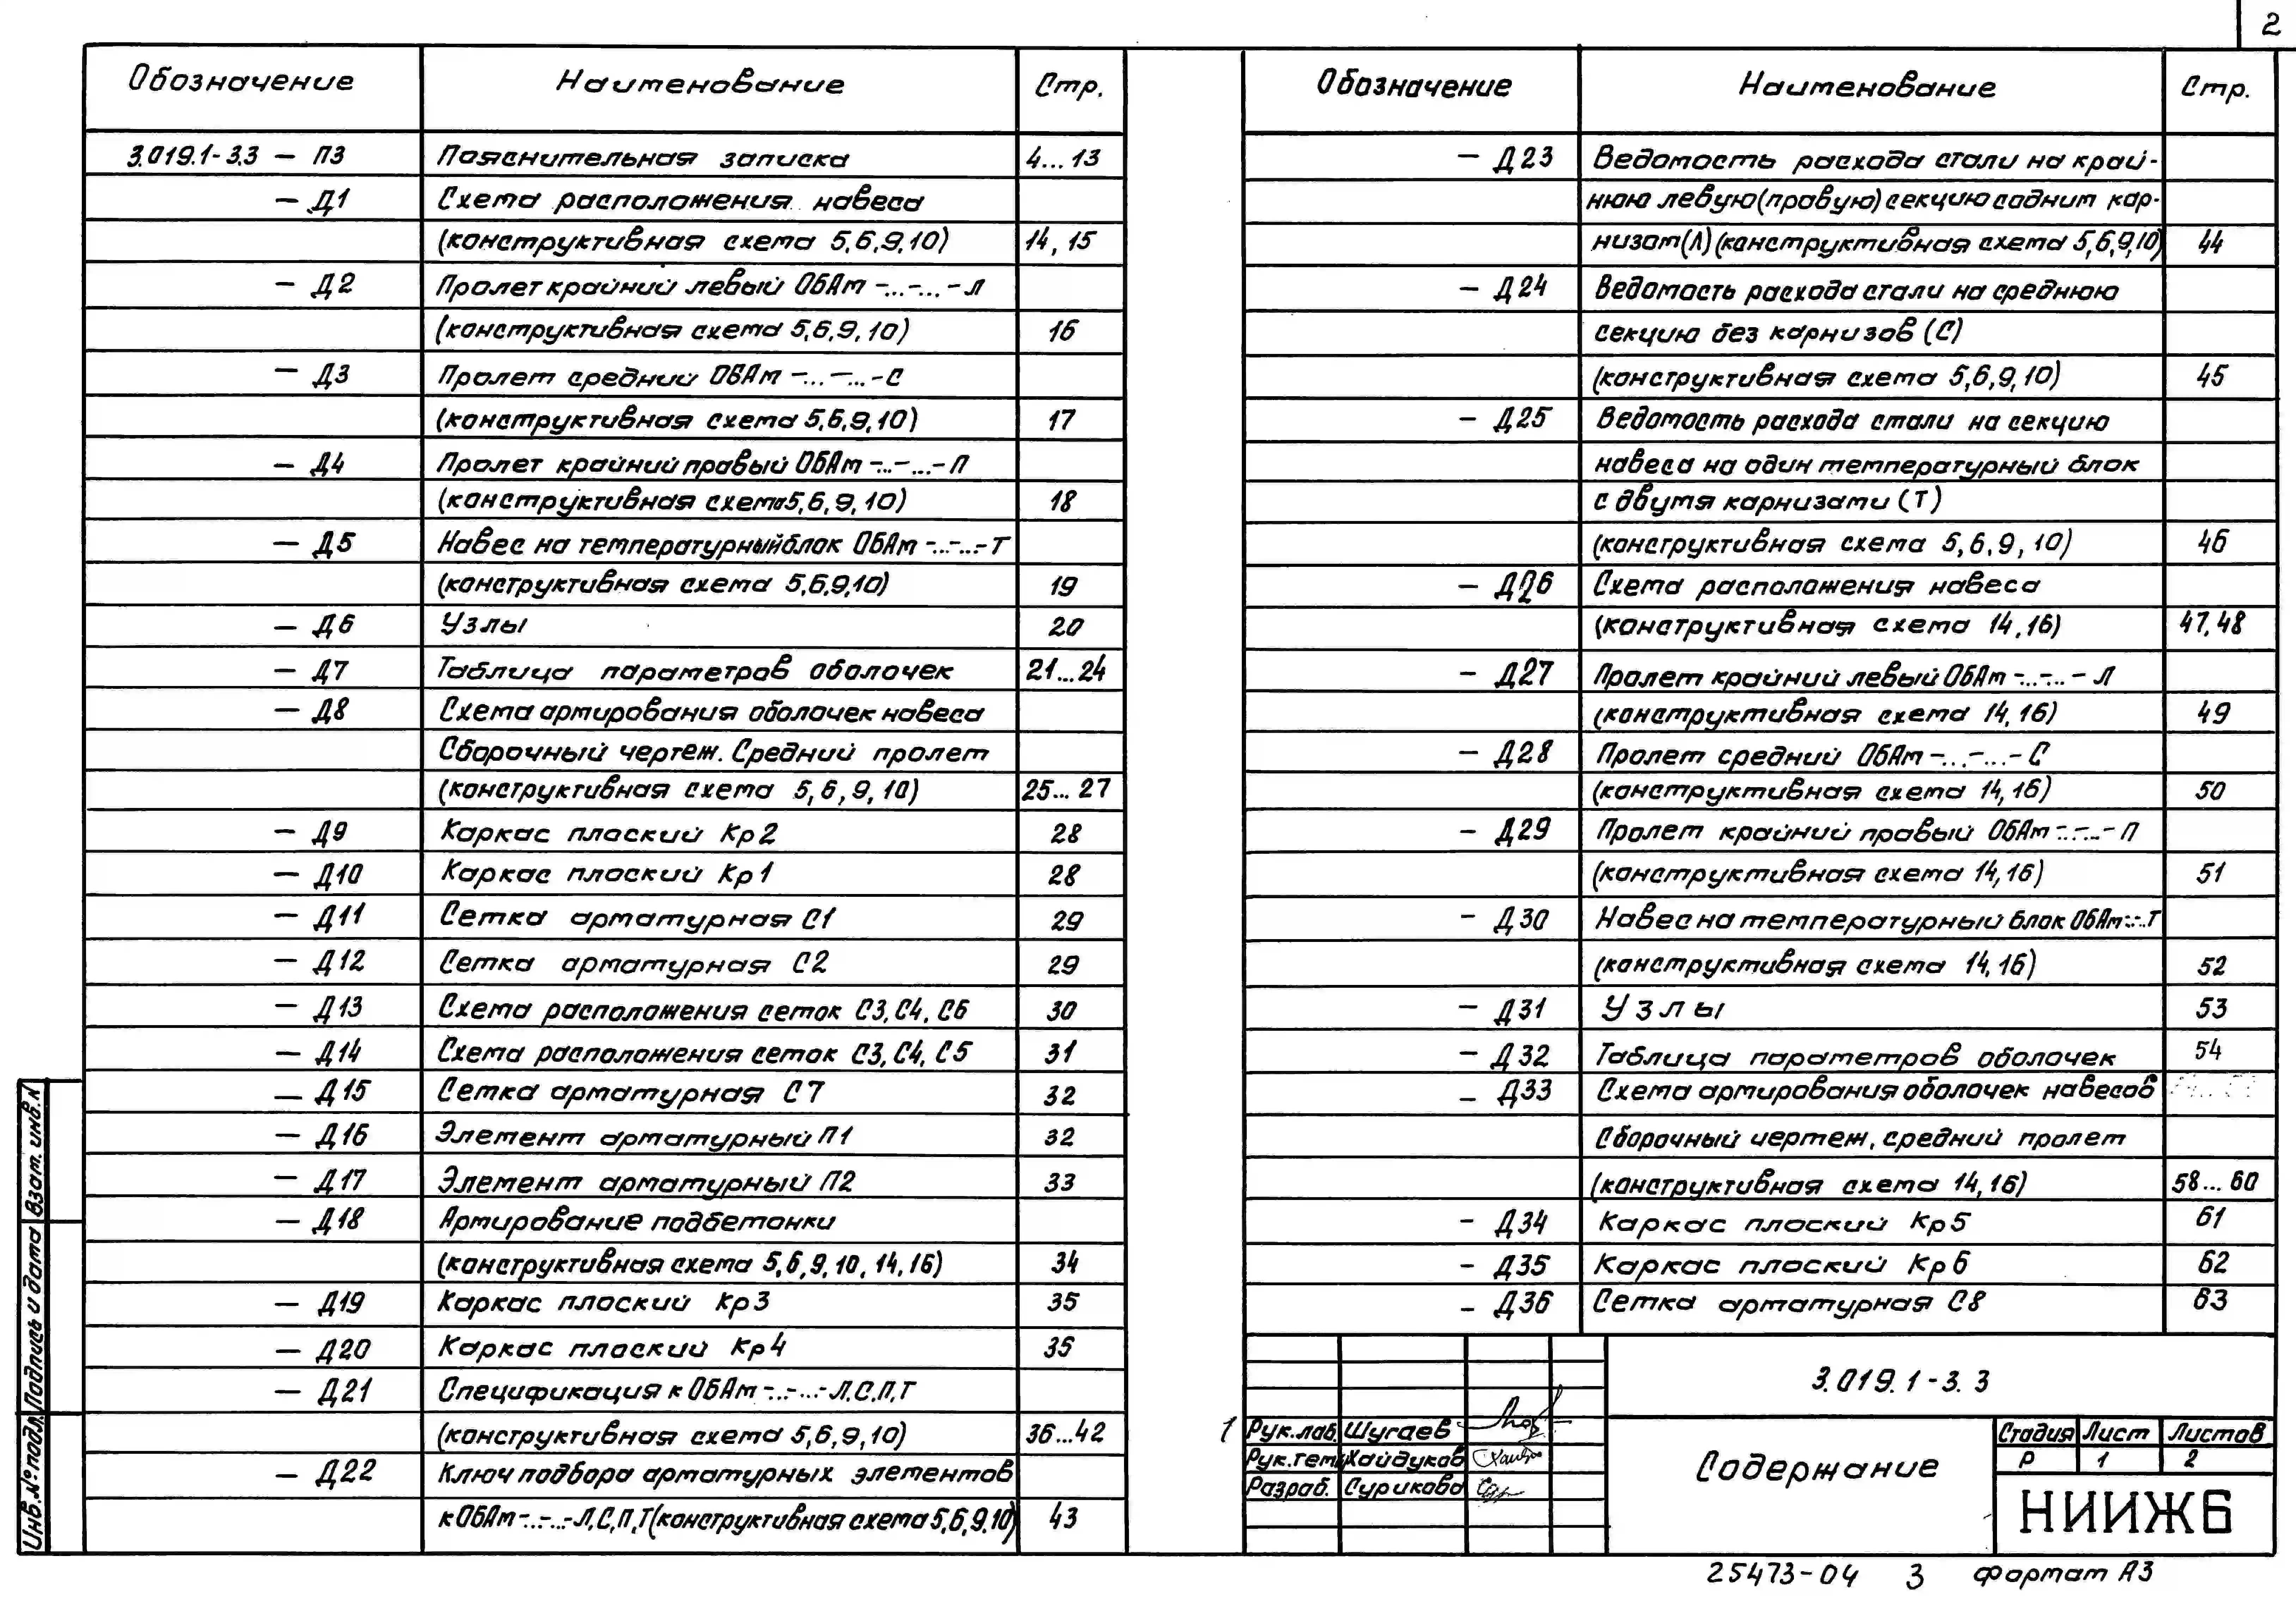 2
Обозначение Наименование Стр.
3.019.1-3.3 — ПЗ Пояснительная записка 4...13
— Д1 Схема расположения навеса
(конструктивная схема 5,6,9,10) 14, 15
— Д2 Пролет крайний левый ОБАт -...-...-Л
(конструктивная схема 5,6,9,10) 16
— Д3 Пролет средний ОВАт -...-...-С
(конструктивная схема 5,6,9,10) 17
— Д4 Пролет крайний правый ОБАт -...-...-П
(конструктивная схема 5,6,9,10) 18
— Д5 Навес на температурный блок ОБАт -..-..-Т
(конструктивная схема 5,6,9,10) 19
— Д6 Узлы 20
— Д7 Таблица параметров оболочек 21...24
— Д8 Схема армирования оболочек навеса
Сборочный чертеж. Средний пролет
(конструктивная схема 5,6,9,10) 25...27
— Д9 Каркас плоский Кр2 28
— Д10 Каркас плоский Кр1 28
— Д11 Сетка арматурная С1 29
— Д12 Сетка арматурная С2 29
— Д13 Схема расположения сеток С3, С4, С6 30
— Д14 Схема расположения сеток С3, С4, С5 31
— Д15 Сетка арматурная С7 32
— Д16 Элемент арматурный П1 32
— Д17 Элемент арматурный П2 33
— Д18 Армирование подбетонки
(конструктивная схема 5,6,9,10,14,16) 34
— Д19 Каркас плоский Кр3 35
— Д20 Каркас плоский Кр4 35
— Д21 Спецификация к ОБАт -..-...-Л,С,П,Т
(конструктивная схема 5,6,9,10) 36...42
— Д22 Ключ подбора арматурных элементов
к ОБАт -..-...-Л,С,П,Т (конструктивная схема 5,6,9.10) 43
Обозначение Наименование Стр.
— Д23 Ведомость расхода стали на край-
нюю левую (правую) секцию с одним кар-
низом (Л) (конструктивная схема 5,6,9,10) 44
— Д24 Ведомость расхода стали на среднюю
секцию без карнизов (С)
(конструктивная схема 5,6,9,10) 45
— Д25 Ведомость расхода стали на секцию
навеса на один температурный блок
с двумя карнизами (Т)
(конструктивная схема 5,6,9,10) 46
— Д26 Схема расположения навеса
(конструктивная схема 14,16) 47,48
— Д27 Пролет крайний левый ОБАт -...-..-Л
(конструктивная схема 14,16) 49
— Д28 Пролет средний ОБАт -...-...-С
(конструктивная схема 14,16) 50
— Д29 Пролет крайний правый ОБАт -..-..-П
(конструктивная схема 14,16) 51
— Д30 Навес на температурный блок ОБАт-..-..Т
(конструктивная схема 14,16) 52
— Д31 Узлы 53
— Д32 Таблица параметров оболочек 54
— Д33 Схема армирования оболочек навесов
Сборочный чертеж, средний пролет
(конструктивная схема 14,16) 58...60
— Д34 Каркас плоский Кр5 61
— Д35 Каркас плоский Кр6 62
— Д36 Сетка арматурная С8 63
3.019.1-3.3
1 Рук.лаб. Шугаев
Рук.темы Хайдуков
Разраб. Сурикова
Содержание
Стадия Лист Листов
Р 1 2
НИИЖБ
Инв.№подл. Подпись и дата Взам.инв.N
25473-04 3 формат А3